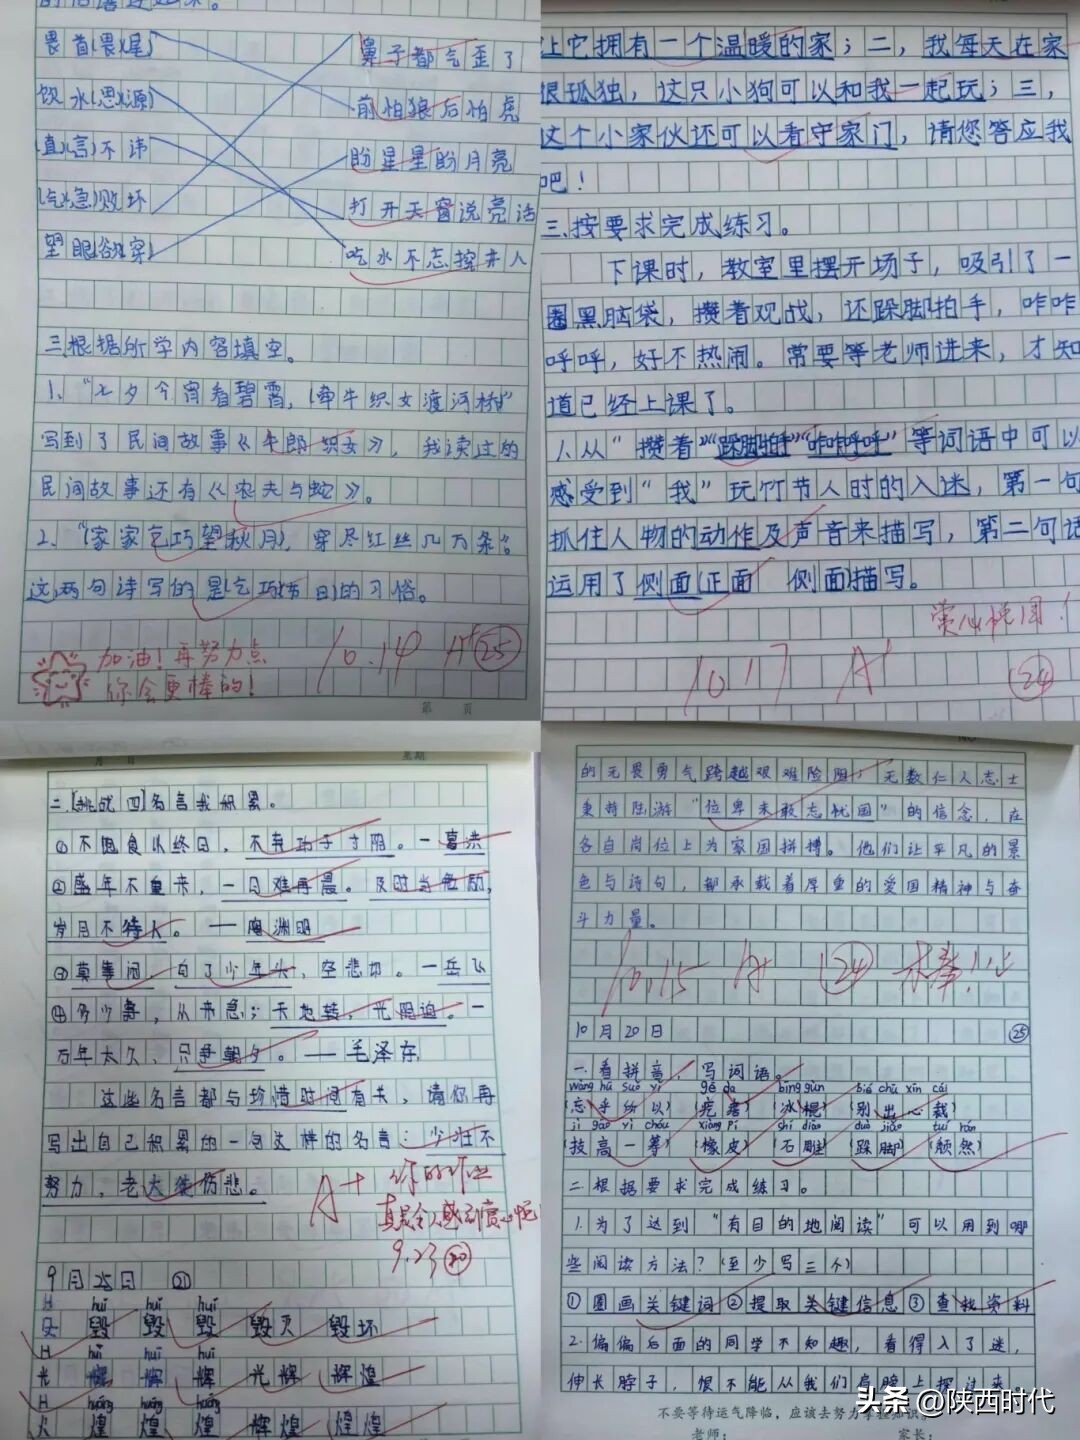 畏首(畏)(尾) 鼻子都气歪了
饮水(思)(源) 前怕狼后怕虎
(直)(言)不讳 盼星星盼月亮
(气)(急)败坏 打开天窗说亮话
望眼(欲)(穿) 吃水不忘挖井人
三.根据所学内容填空。
1、“七夕今宵看碧霄,(牵牛织女渡河桥)”
写到了民间故事《牛郎织女》,我读过的
民间故事还有《农夫与蛇》。
2、“(家家乞巧望秋月),穿尽红丝几万条”。
这两句诗写的是(乞巧节日)的习俗。
加油!再努力点
你会更棒的!
10.14 A+ 25
第 页
让它拥有一个温暖的家;二,我每天在家
很孤独,这只小狗可以和我一起玩;三,
这个小家伙还可以看守家门,请您答应我
吧!
三.按要求完成练习。
下课时,教室里摆开场子,吸引了一
圈黑脑袋,攒着观战,还跺脚拍手,咋咋
呼呼,好不热闹。常要等老师进来,才知
道已经上课了。
1.从“攒着”“跺脚拍手”“咋咋呼呼”等词语中可以
感受到“我”玩竹节人时的入迷,第一句
抓住人物的动作及声音来描写,第二句话
运用了侧面(正面 侧面)描写。
赏心悦目!
10.17 A+ 24
月 日 星期
二.[挑战四]名言我积累。
①不饱食以终日,不弃功于寸阴。—葛洪
②盛年不重来,一日难再晨。及时当勉励,
岁月不待人。——陶渊明
③莫等闲,白了少年头,空悲切。—岳飞
④多少事,从来急;天地转,光阴迫。一
万年太久,只争朝夕。——毛泽东
这些名言都与珍惜时间有关,请你再
写出自己积累的一句这样的名言:少壮不
努力,老大徒伤悲。
A+ 你的作业
真是令人感到赏心悦目
9.23 20
9月25日 21
huǐ huǐ huǐ
毁 毁 毁 毁灭 毁坏
huī huī huī
辉 辉 辉 光辉 辉煌
huáng huáng huáng
煌 煌 煌 辉煌 煌煌
的无畏勇气跨越艰难险阻,无数仁人志士
秉持陆游“位卑未敢忘忧国”的信念,在
各自岗位上为家国拼搏。他们让平凡的景
色与诗句,都承载着厚重的爱国精神与奋
斗力量。
10.15 A+ 24 未棒!
10月20日 25
一.看拼音,写词语。
wàng hū suǒ yǐ gē da bīng gùn bié chū xīn cái
(忘乎所以) (疙瘩) (冰棍) (别出心裁)
jì gāo yì chóu xiàng pí shí diāo duò jiǎo tuí rán
(技高一筹) (橡皮) (石雕) (跺脚) (颓然)
二.根据要求完成练习。
1.为了达到“有目的地阅读”可以用到哪
些阅读方法?(至少写三个)
①圈画关键词②提取关键信息③查找资料
2.偏偏后面的同学不知趣,看得入了迷,
伸长脖子,恨不能从我们肩膀上探过来
不要等待运气降临,应该去努力掌握知识。
老师: 家长:
头条 @陕西时代